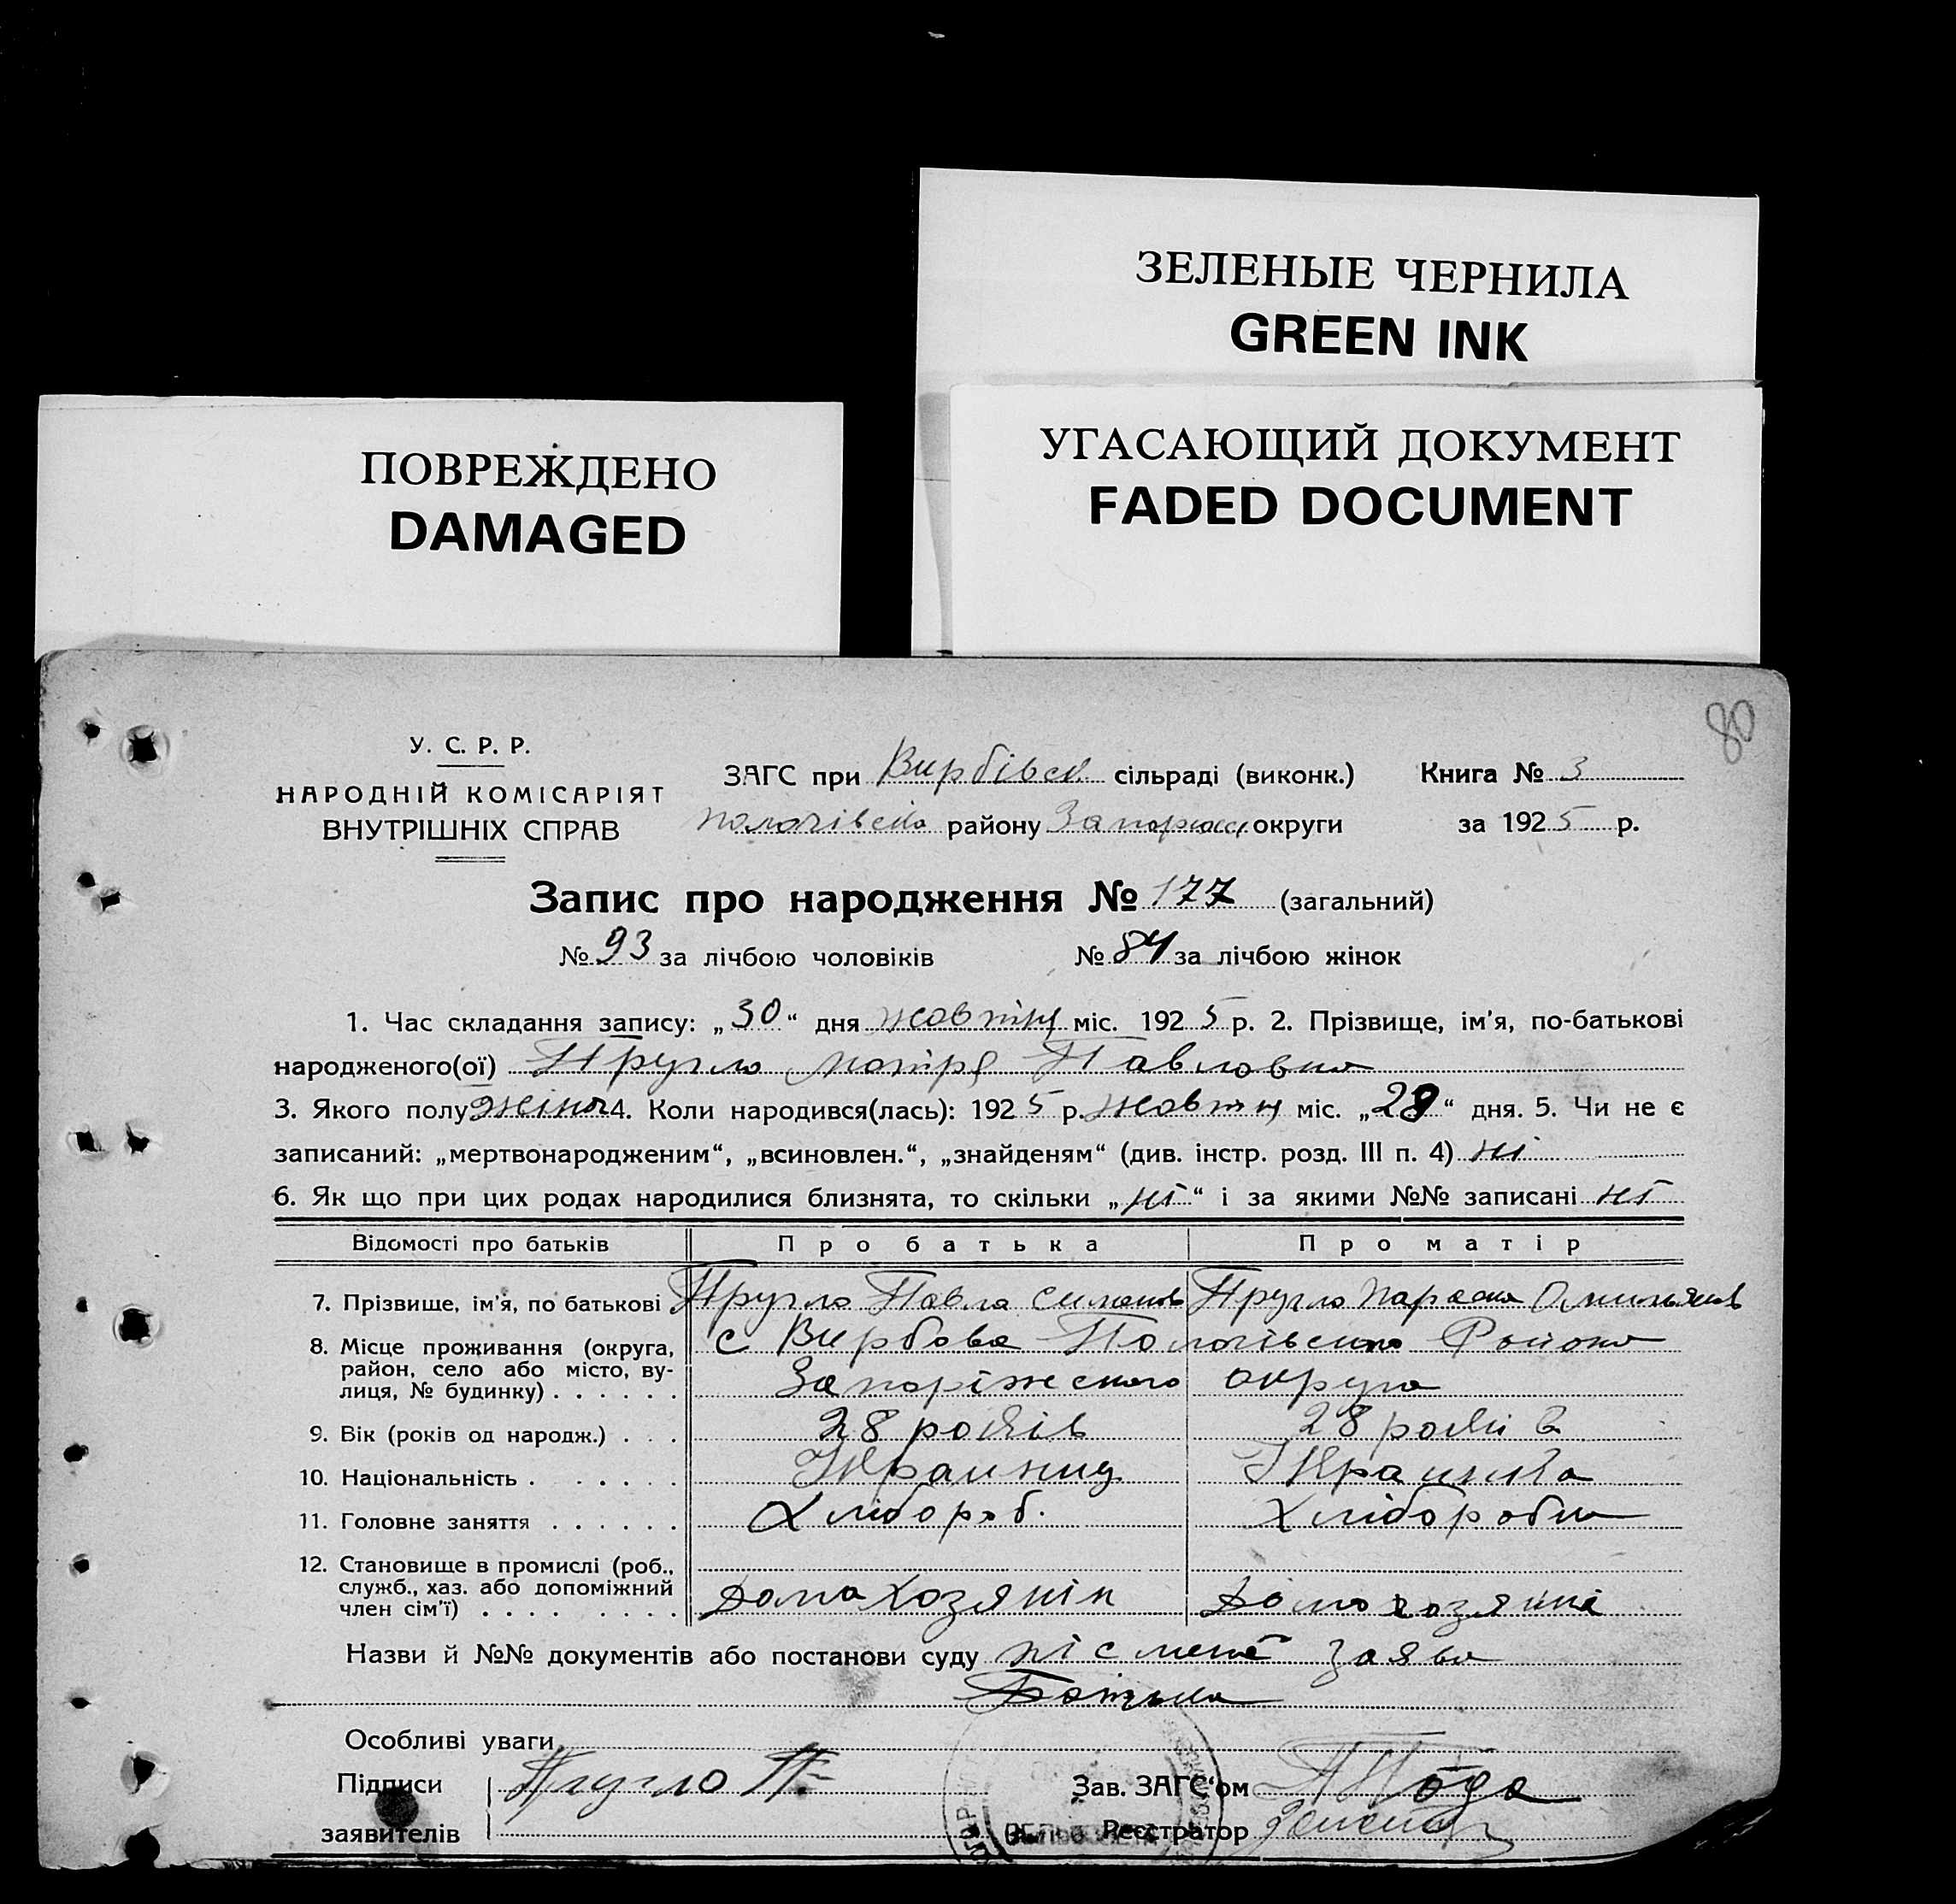 ЗЕЛЕНЫЕ ЧЕРНИЛА
GREEN INK
УГАСАЮЩИЙ ДОКУМЕНТ
FADED DOCUMENT
ПОВРЕЖДЕНО
DAMAGED
80
У. С. Р. Р.
НАРОДНІЙ КОМІСАРІЯТ
ВНУТРІШНІХ СПРАВ
ЗАГС при Вирбівск. сільраді (виконк.) Книга № 3
району округи за 1925 р.
Запис про народження № 177 (загальний)
№ 93 за лічбою чоловіків № 84 за лічбою жінок
1. Час складання запису: „30“ дня жовтня міс. 1925 р. 2. Прізвище, ім'я, по-батькові
народженого(ої) Павловна
3. Якого полу 4. Коли народився(лась): 1925 р. жовтня міс. „28“ дня. 5. Чи не є
записаний: „мертвонародженим“, „всиновлен.“, „знайденям“ (див. інстр. розд. III п. 4) ні
6. Як що при цих родах народилися близнята, то скільки „ні“ і за якими №№ записані ні
Відомості про батьків Про батька Про матір
7. Прізвище, ім'я, по батькові Павло Параска
8. Місце проживання (округа, с Вирбова Района
район, село або місто, ву-
лиця, № будинку) Запоріжского округа
9. Вік (років од народж.) 28 років 28 років
10. Національність
11. Головне заняття Хлібороб. Хлібороб
12. Становище в промислі (роб.,
служб., хаз. або допоміжний
член сім'ї) Домахозянін
Назви й №№ документів або постанови суду заява
Батька
Особливі уваги
Підписи
заявителів
Зав. ЗАГС'ом
Реєстратор